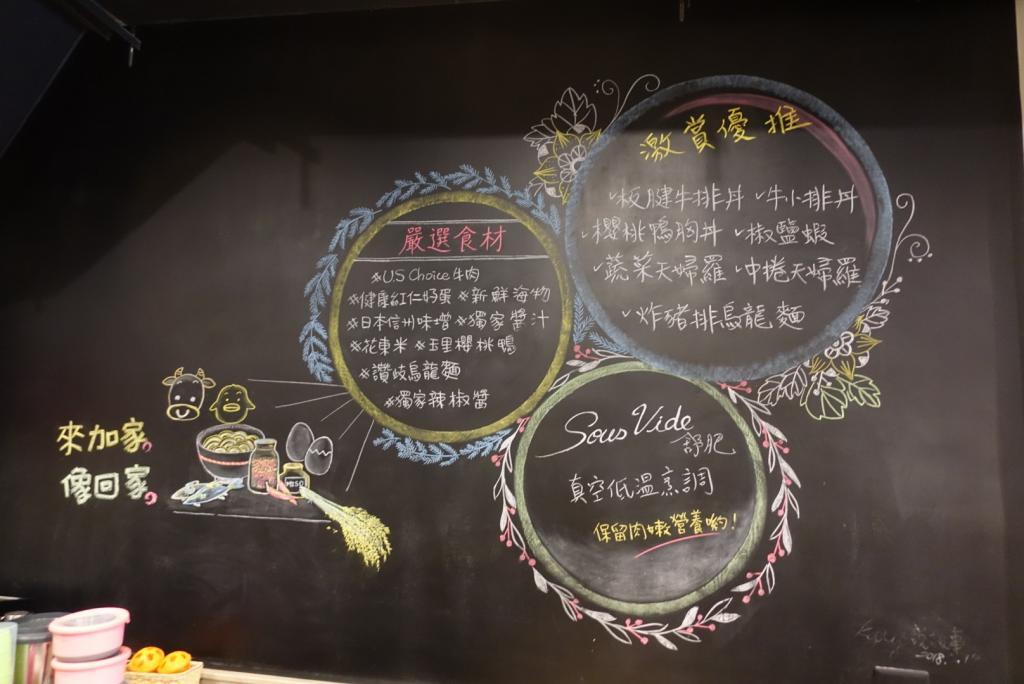 激賞優推
✓板腱牛排丼 ✓牛小排丼
✓櫻桃鴨胸丼 ✓椒鹽蝦
✓蔬菜天婦羅 ✓中捲天婦羅
✓炸豬排烏龍麵
嚴選食材
※U.S Choice牛肉
※健康紅仁好蛋 ※新鮮海物
※日本信州味增 ※獨家醬汁
※花東米 ※玉里櫻桃鴨
※讚岐烏龍麵
※獨家辣椒醬
Sous Vide
舒肥
真空低溫烹調
保留肉嫩營養喲!
來加家。
像回家。
MISO